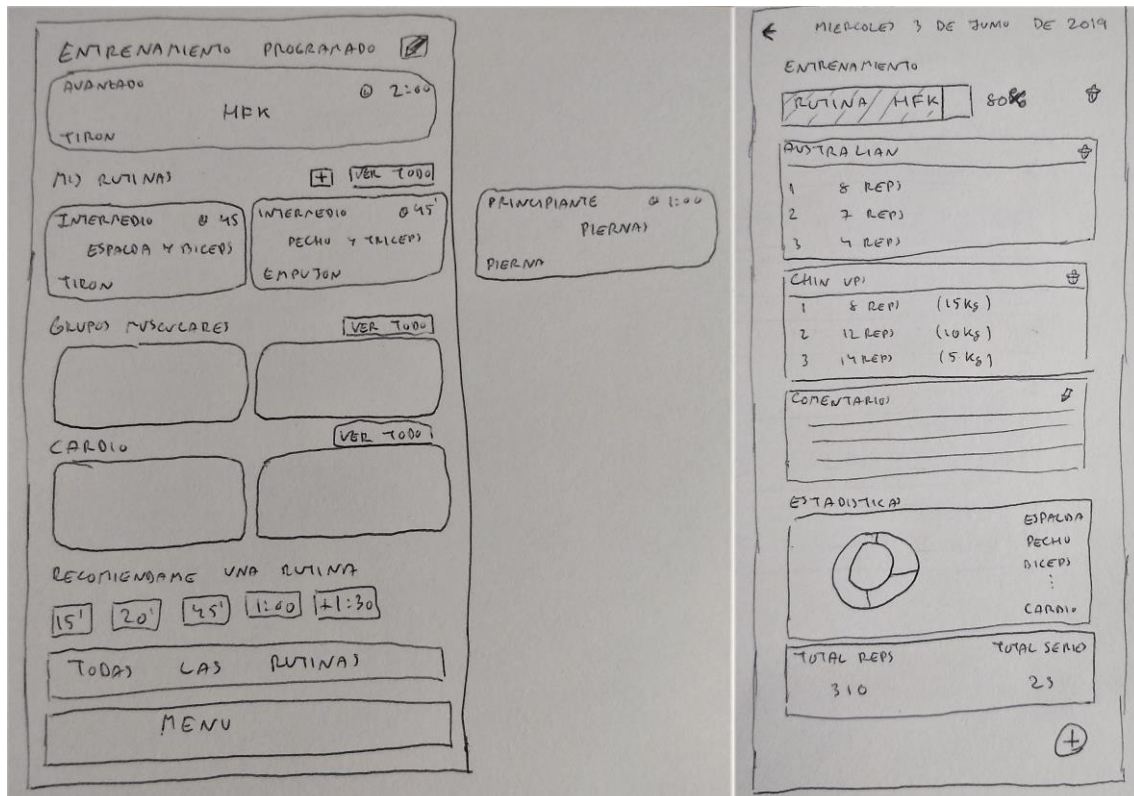 ENTRENAMIENTO PROGRAMADO
AVANZADO 2:00
MFK
TIRON
MIS RUTINAS + VER TODO
INTERMEDIO 45'
ESPALDA Y BICEPS
TIRON
INTERMEDIO 45'
PECHO Y TRICEPS
EMPUJON
PRINCIPIANTE 1:00
PIERNAS
PIERNA
GRUPOS MUSCULARES VER TODO
CARDIO VER TODO
RECOMIENDAME UNA RUTINA
15' 20' 45' 1:00 +1:30
TODAS LAS RUTINAS
MENU
MIERCOLES 3 DE JUNIO DE 2019
ENTRENAMIENTO
RUTINA MFK 80%
AUSTRALIAN
1 8 REPS
2 7 REPS
3 4 REPS
CHIN UPS
1 8 REPS (15Kg)
2 12 REPS (10Kg)
3 14 REPS (5Kg)
COMENTARIOS
ESTADISTICAS
ESPALDA
PECHO
BICEPS
⋮
CARDIO
TOTAL REPS TOTAL SERIES
310 25
+